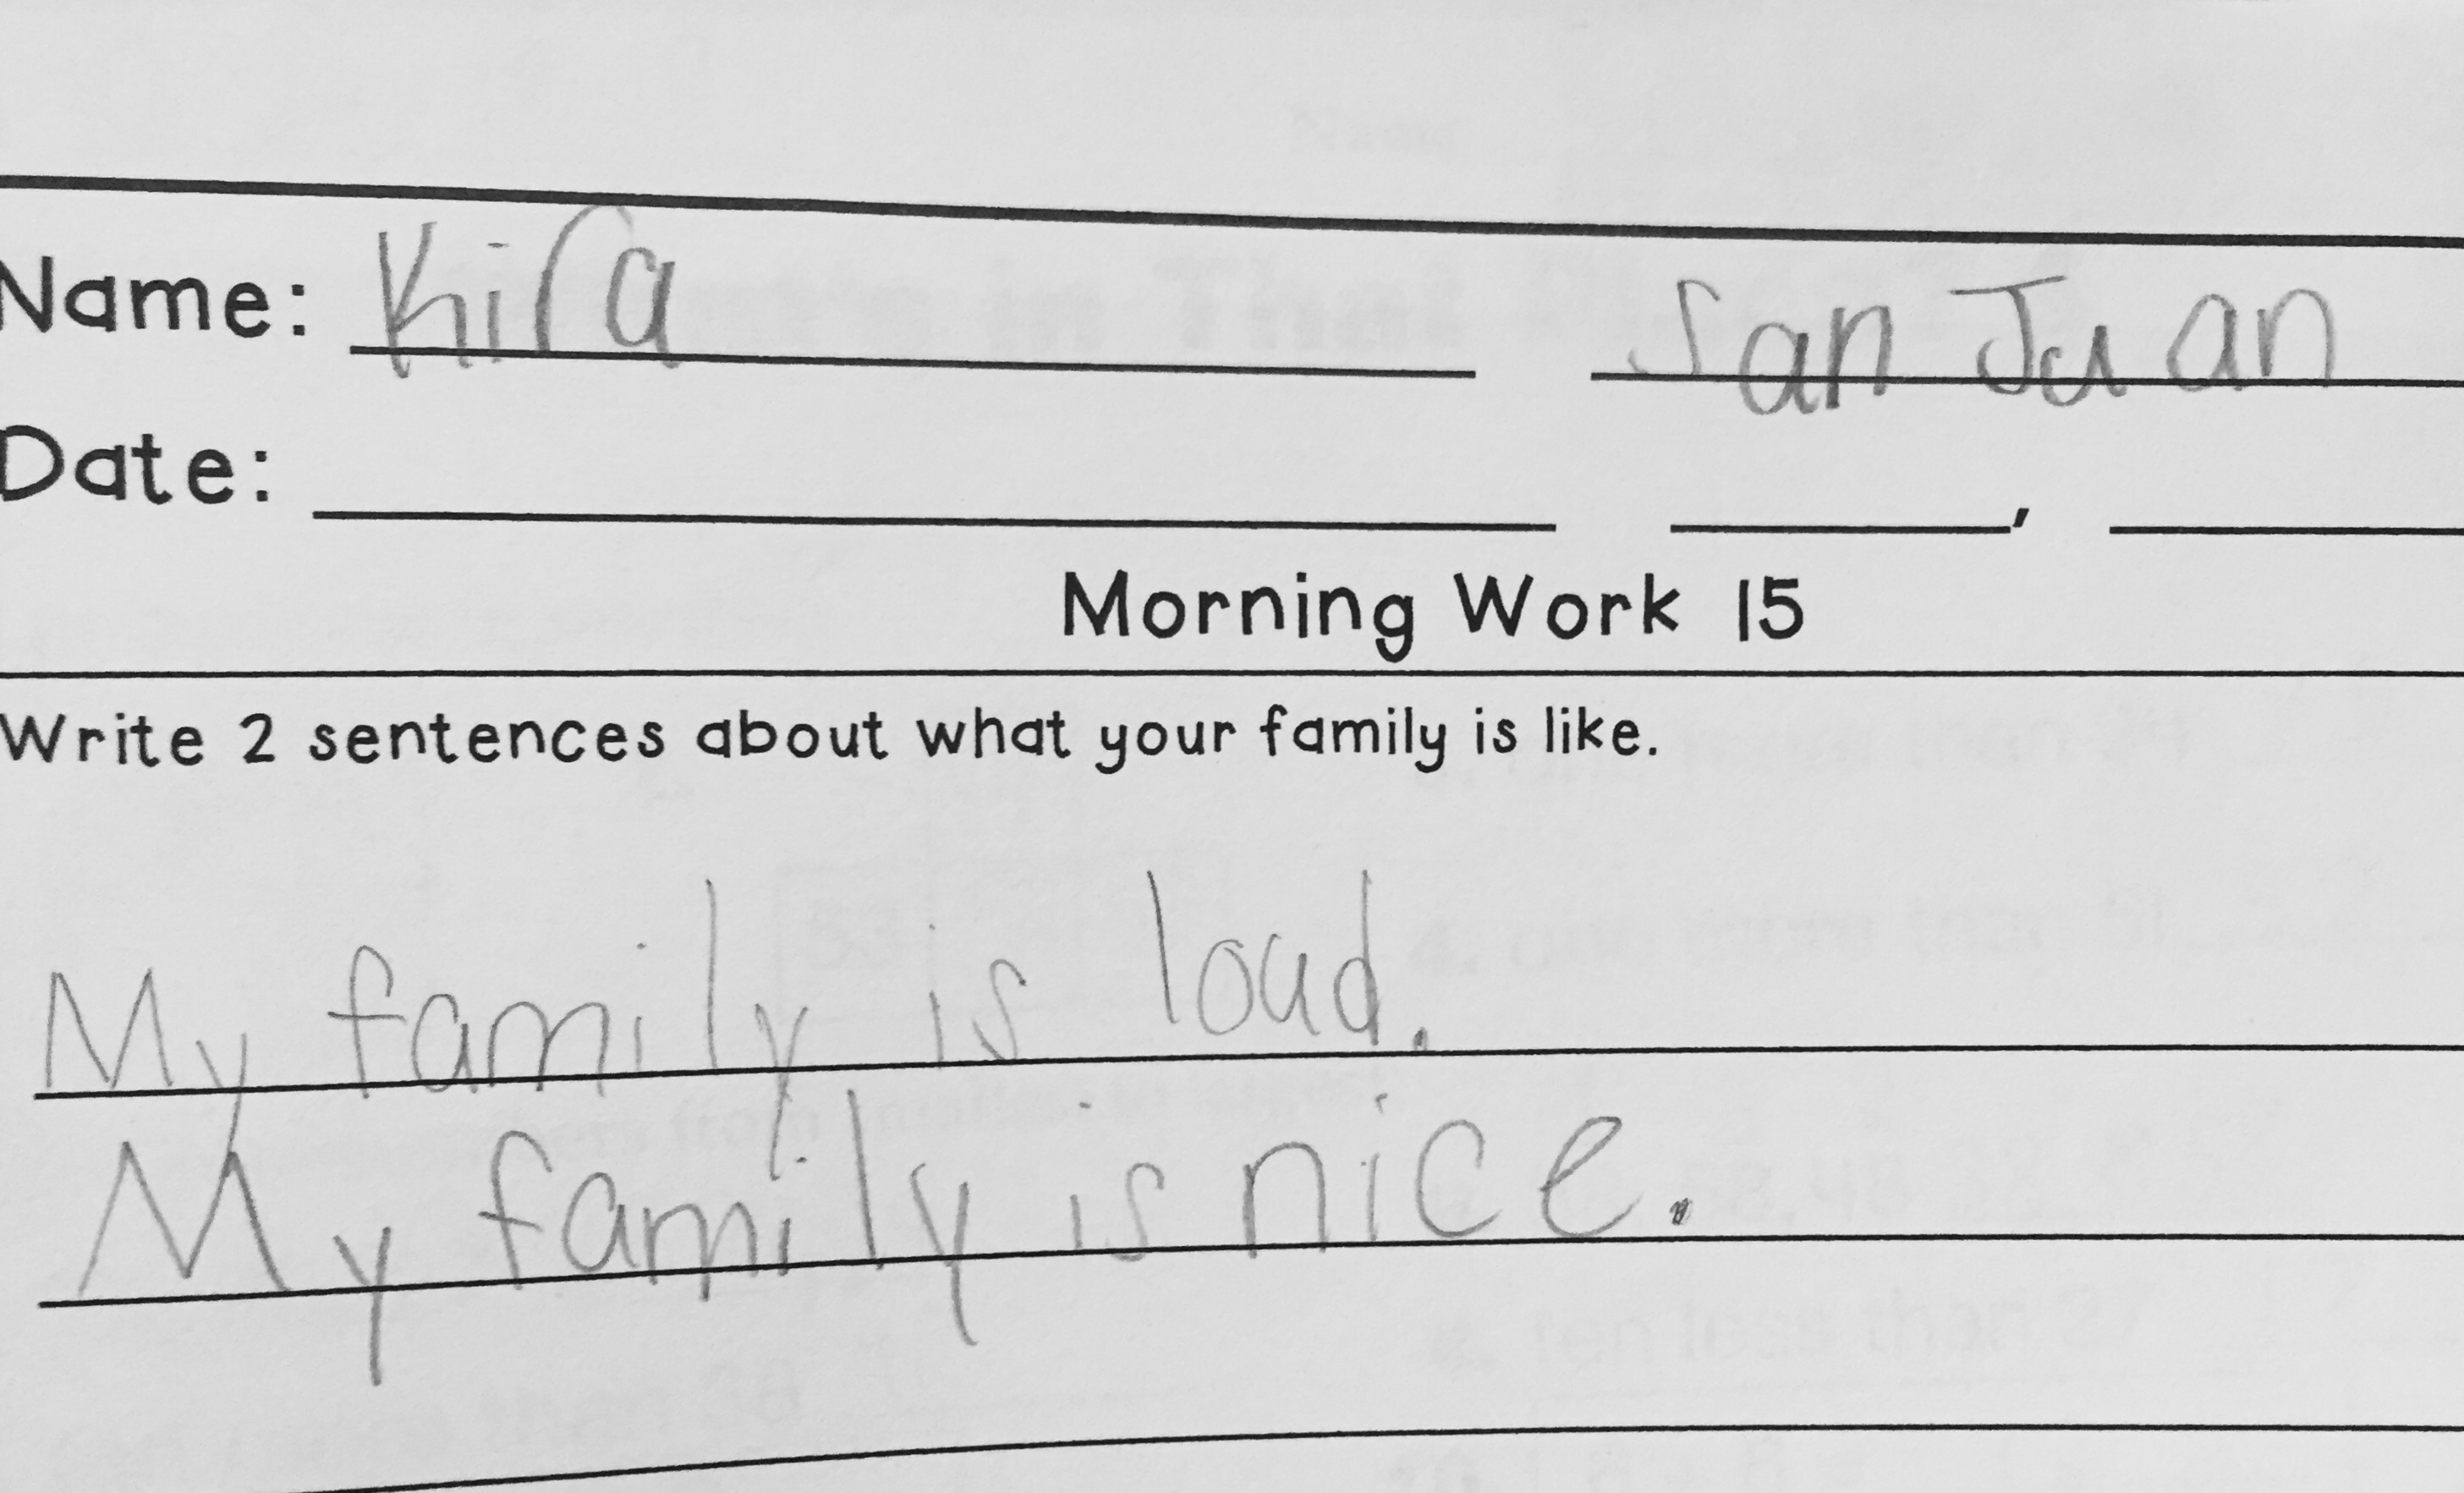 Name: Kira San Juan
Date: ,
Morning Work 15
Write 2 sentences about what your family is like.
My family is loud.
My family is nice.